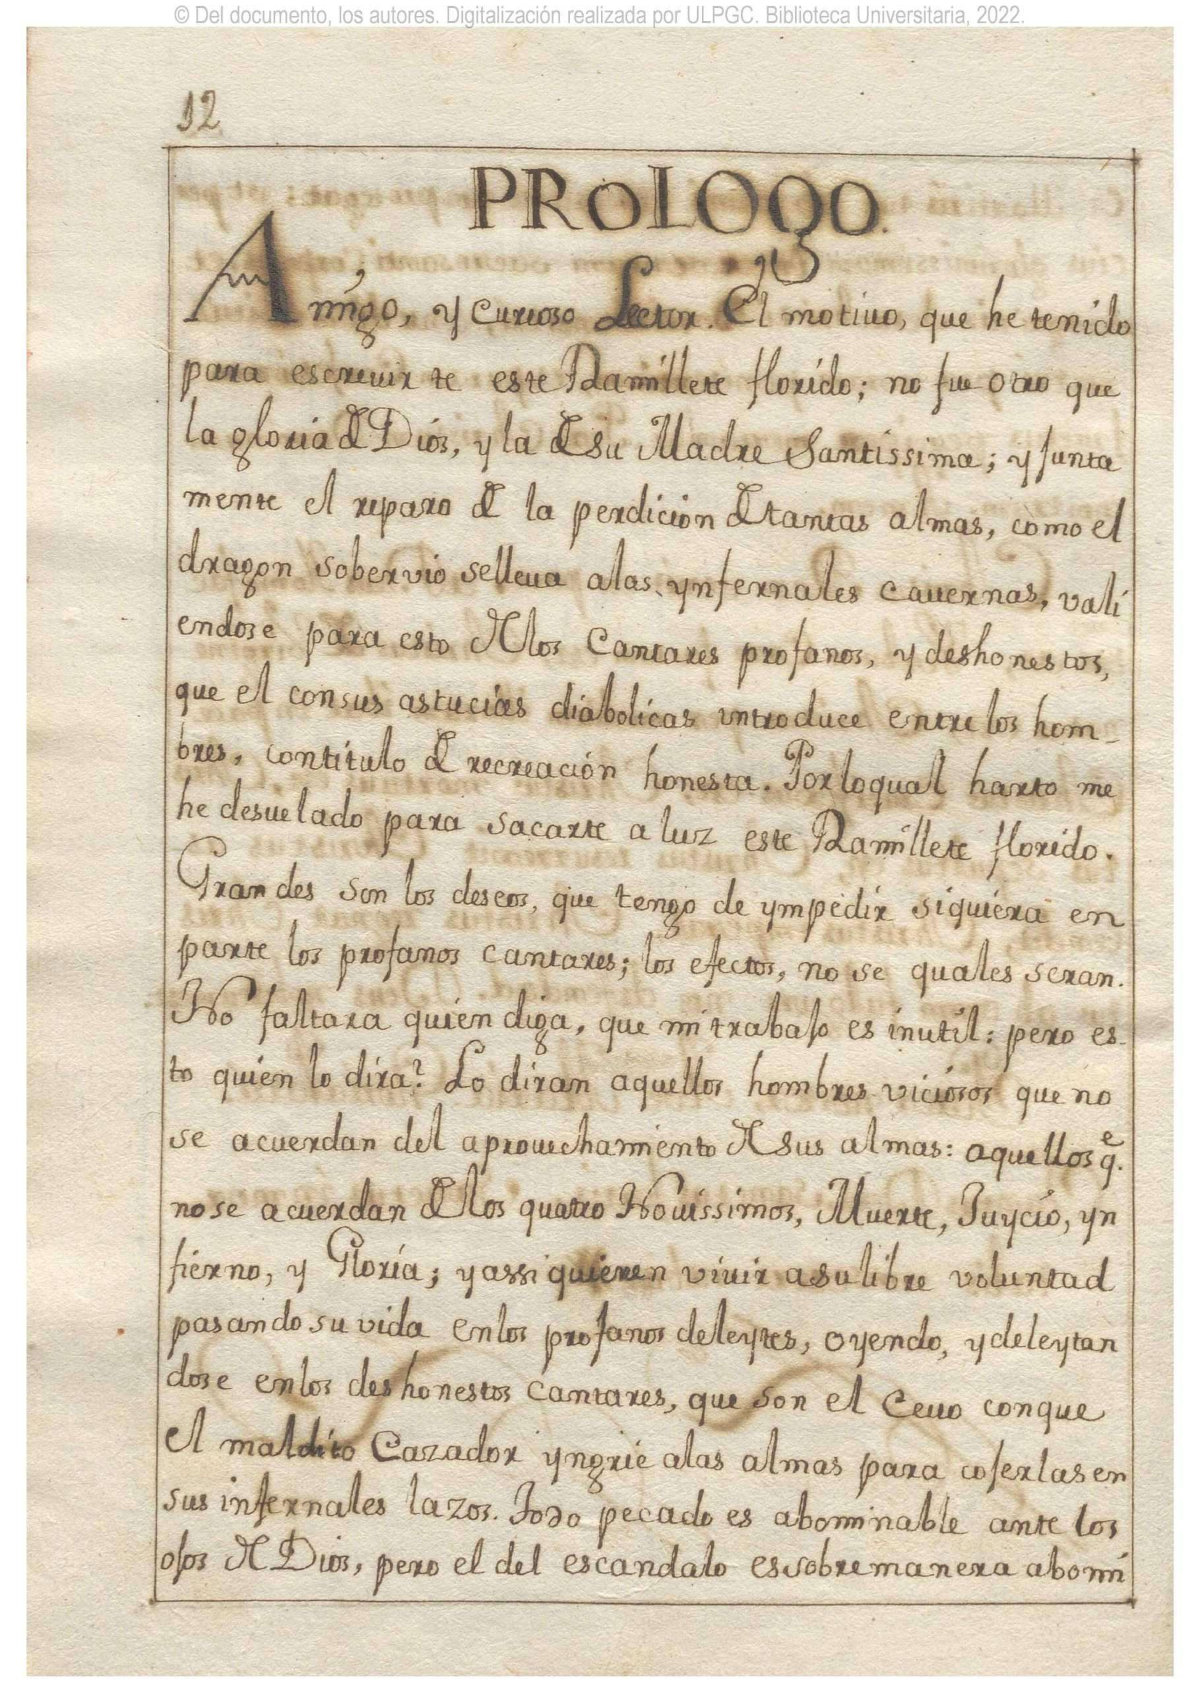 © Del documento, los autores. Digitalización realizada por ULPGC. Biblioteca Universitaria, 2022.
12
PROLOGO.
Amigo, y curioso Lector. El motiuo, que he tenido
para escreuir te este Ramillete florido; no fue otro que
la gloria de Dios, y la de su Madre Santissima; y junta
mente el reparo de la perdicion de tantas almas, como el
dragon sobervio selleua alas ynfernales cauernas, vali
endose para esto de los Cantares profanos, y deshonestos,
que el consus astucias diabolicas yntroduce entre los hom-
bres, contitulo de recreación honesta. Porloqual harto me
he desuelado para sacarte a luz este Ramillete florido.
Grandes son los deseos, que tengo de ympedir siquiera en
parte los profanos cantares; los efectos, no se quales seran.
No faltara quien diga, que mi trabajo es inutil: pero es-
to quien lo dira? Lo diran aquellos hombres viciosos que no
se acuerdan del aprouechamiento de sus almas: aquellos q.e
no se acuerdan de los quatro Nouissimos, Muerte, Juycio, yn
fierno, y Gloria; y assi quieren viuir asulibre voluntad
pasando su vida enlos profanos deleytes, oyendo, y deleytan
dose enlos deshonestos cantares, que son el Ceuo conque
el maldito Cazador yngrie alas almas para cojerlas en
sus infernales lazos. Todo pecado es abominable ante los
ojos de Dios, pero el del escandalo essobremanera abomi